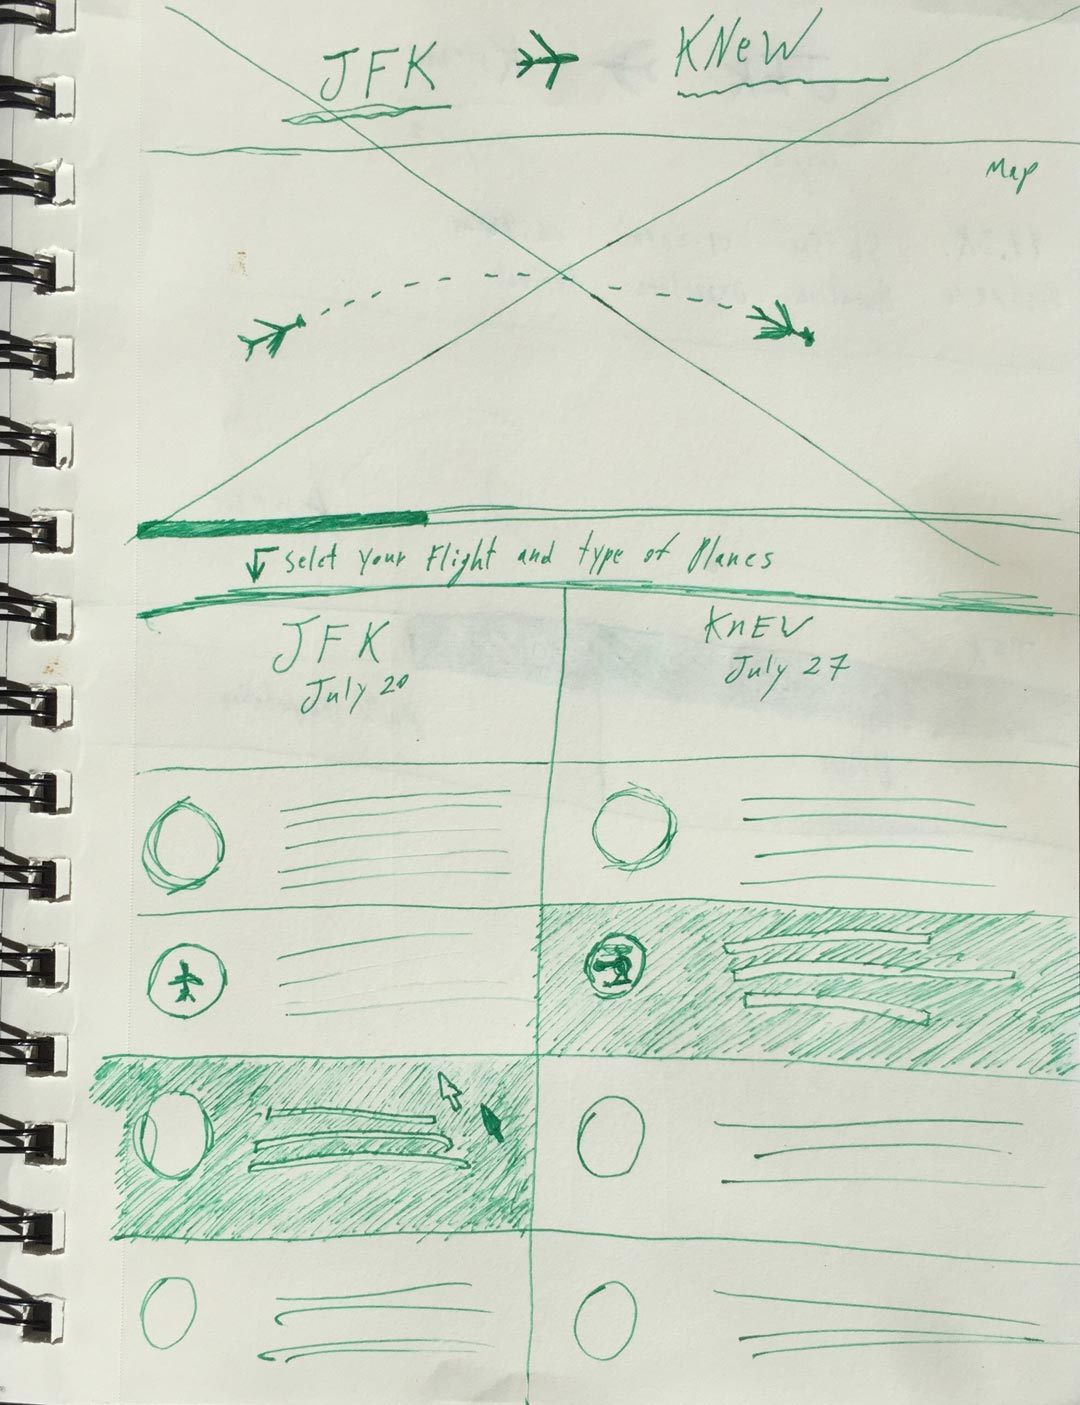 JFK KNeW
Map
Selct your Flight and type of Planes
JFK
July 20
KnEW
July 27